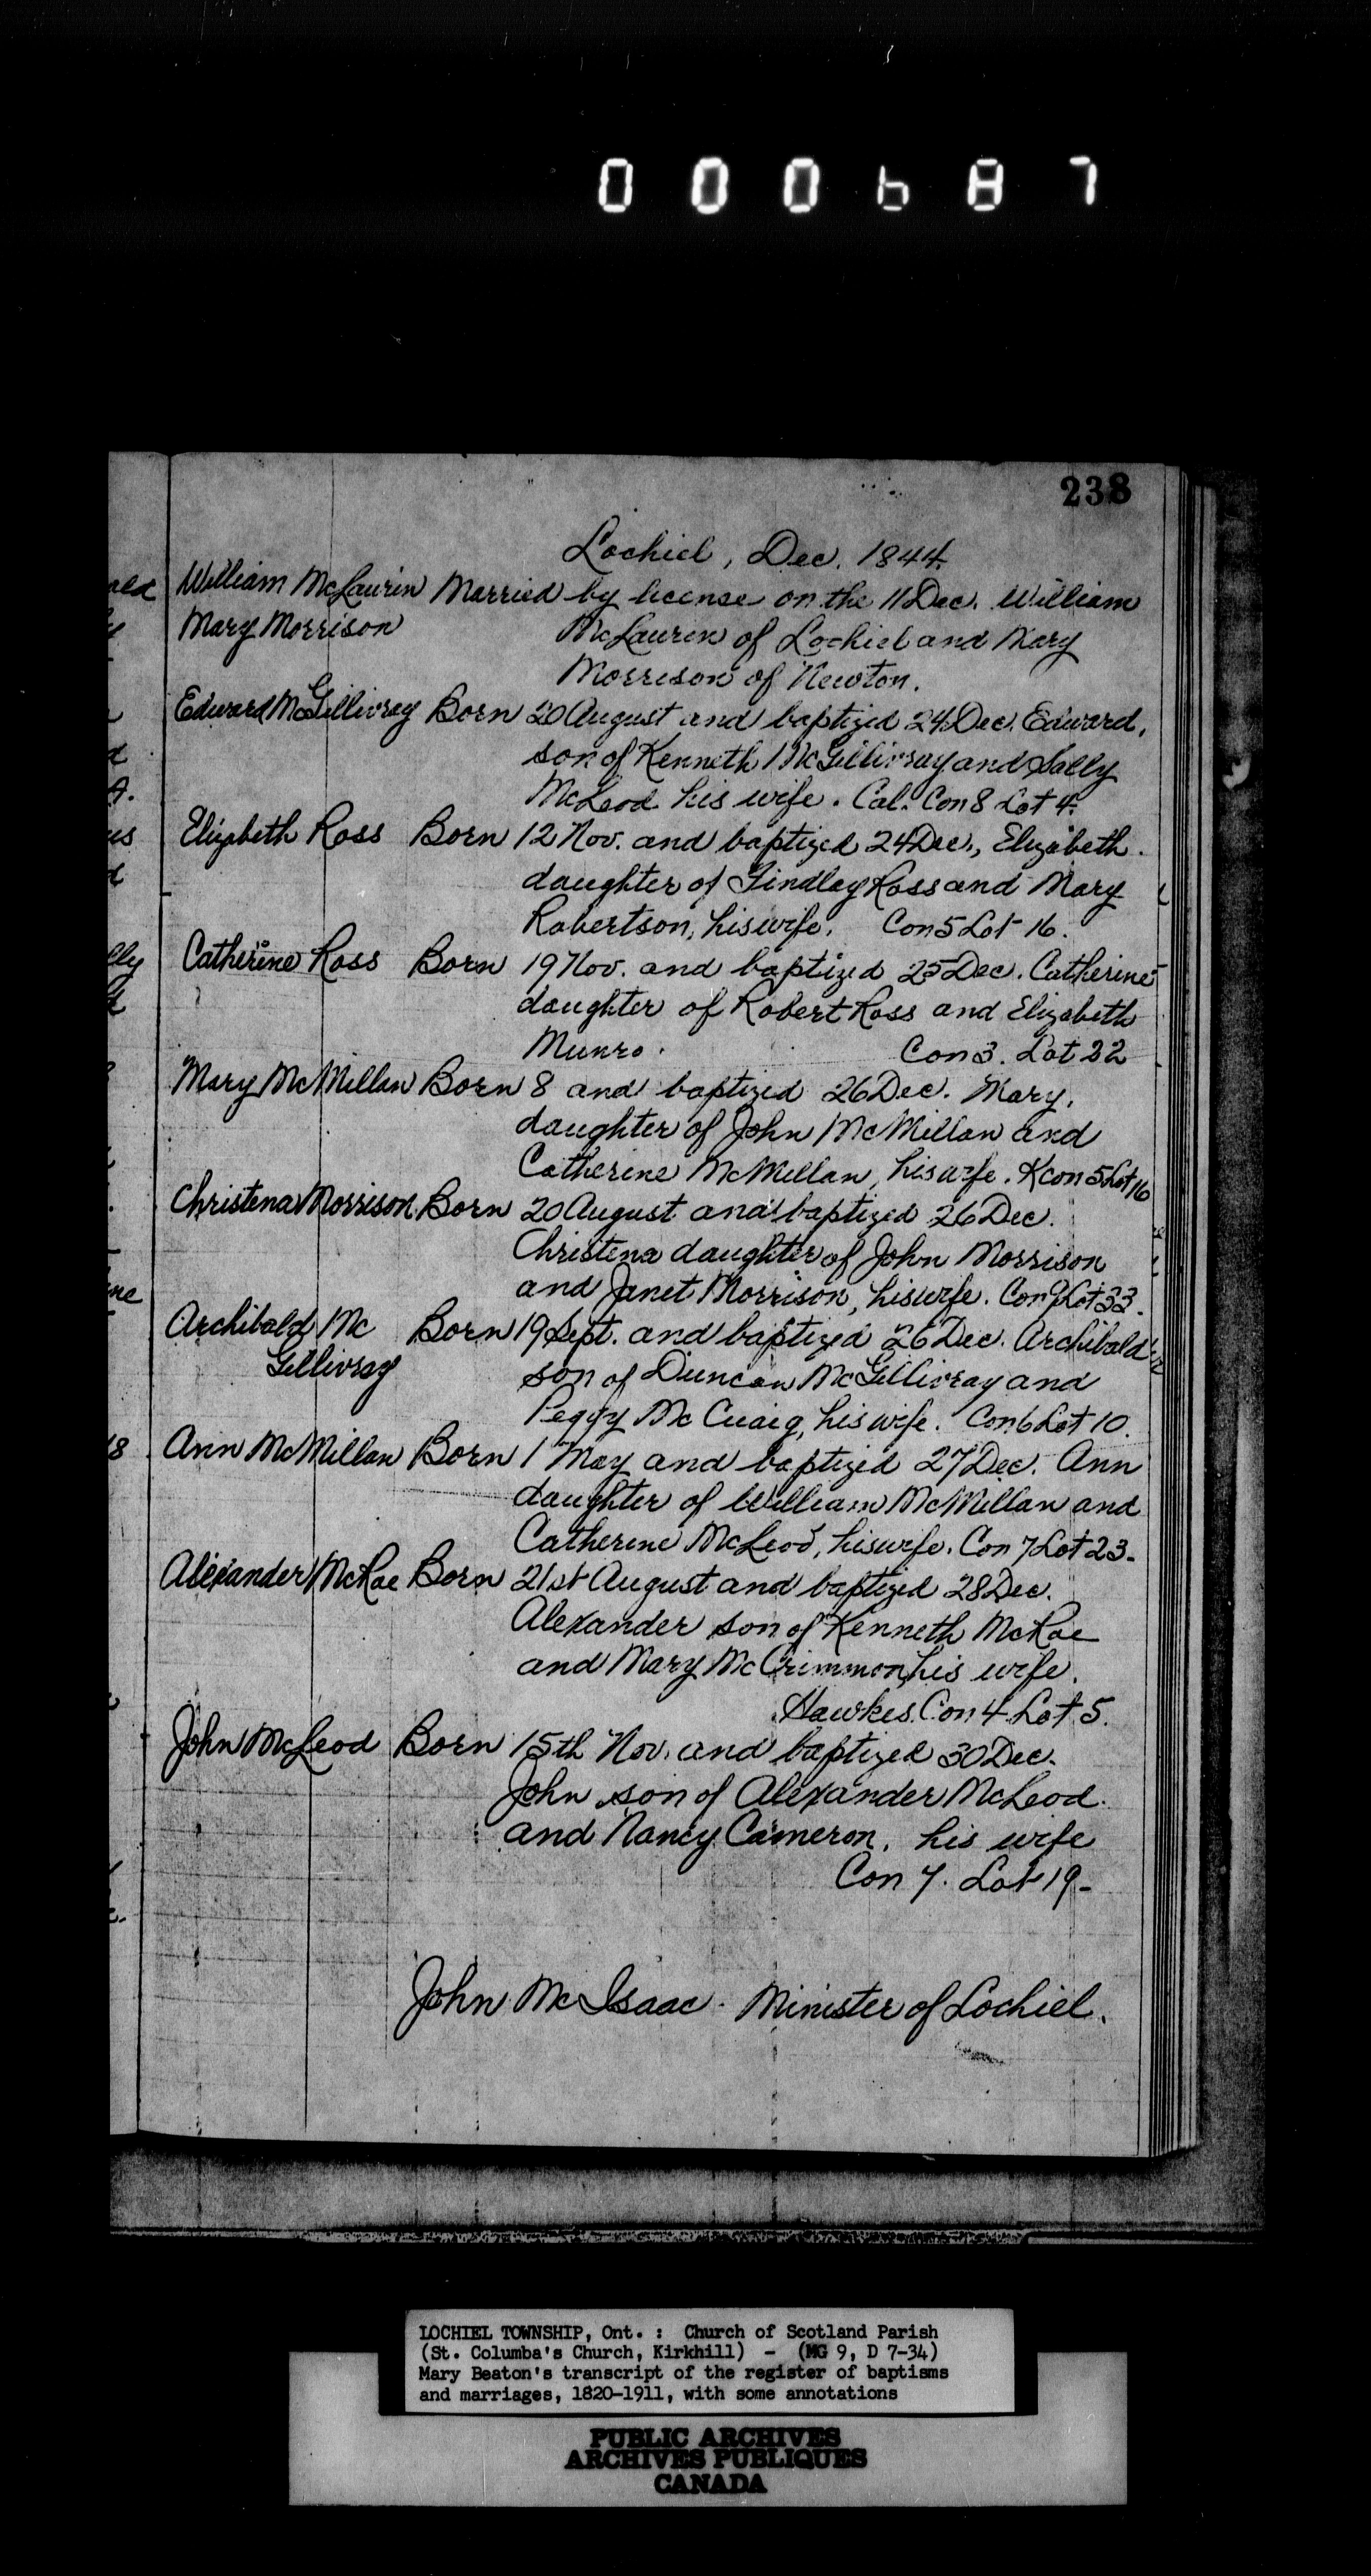 000687
238
Lochiel, Dec. 1844.
William McLaurin Married by license on the 11 Dec. William
Mary Morrison McLaurin of Lochiel and Mary
Morrison of Newton.
Edward McGillivray Born 20 August and baptized 24 Dec. Edward,
son of Kenneth McGillivray and Sally
McLeod his wife. Cal. Con 8 Lot 4.
Elizabeth Ross Born 12 Nov. and baptized 24 Dec., Elizabeth.
daughter of Findlay Ross and Mary
Robertson, his wife. Con 5 Lot 16.
Catherine Ross Born 19 Nov. and baptized 25 Dec. Catherine
daughter of Robert Ross and Elizabeth
Munro. Con 3. Lot 22
Mary McMillan Born 8 and baptized 26 Dec. Mary,
daughter of John McMillan and
Catherine McMillan, his wife. K Con 5 Lot 16
Christena Morrison Born 20 August and baptized 26 Dec.
Christena daughter of John Morrison
and Janet Morrison, his wife. Con 9 Lot 33.
Archibald Mc Born 19 Sept. and baptized 26 Dec. Archibald
Gillivray son of Duncan McGillivray and
Peggy McCuaig, his wife. Con 6 Lot 10.
Ann McMillan Born 1 May and baptized 27 Dec. Ann
daughter of William McMillan and
Catherine McLeod, his wife. Con 7 Lot 23.
Alexander McRae Born 21st August and baptized 28 Dec.
Alexander son of Kenneth McRae
and Mary McCrimmon, his wife.
Hawkes. Con 4 Lot 5.
John McLeod Born 15th Nov. and baptized 30 Dec.
John son of Alexander McLeod
and Nancy Cameron, his wife
Con 7. Lot 19-
John McIsaac. Minister of Lochiel.
LOCHIEL TOWNSHIP, Ont. : Church of Scotland Parish
(St. Columba's Church, Kirkhill) - (MG 9, D 7-34)
Mary Beaton's transcript of the register of baptisms
and marriages, 1820-1911, with some annotations
PUBLIC ARCHIVES
ARCHIVES PUBLIQUES
CANADA